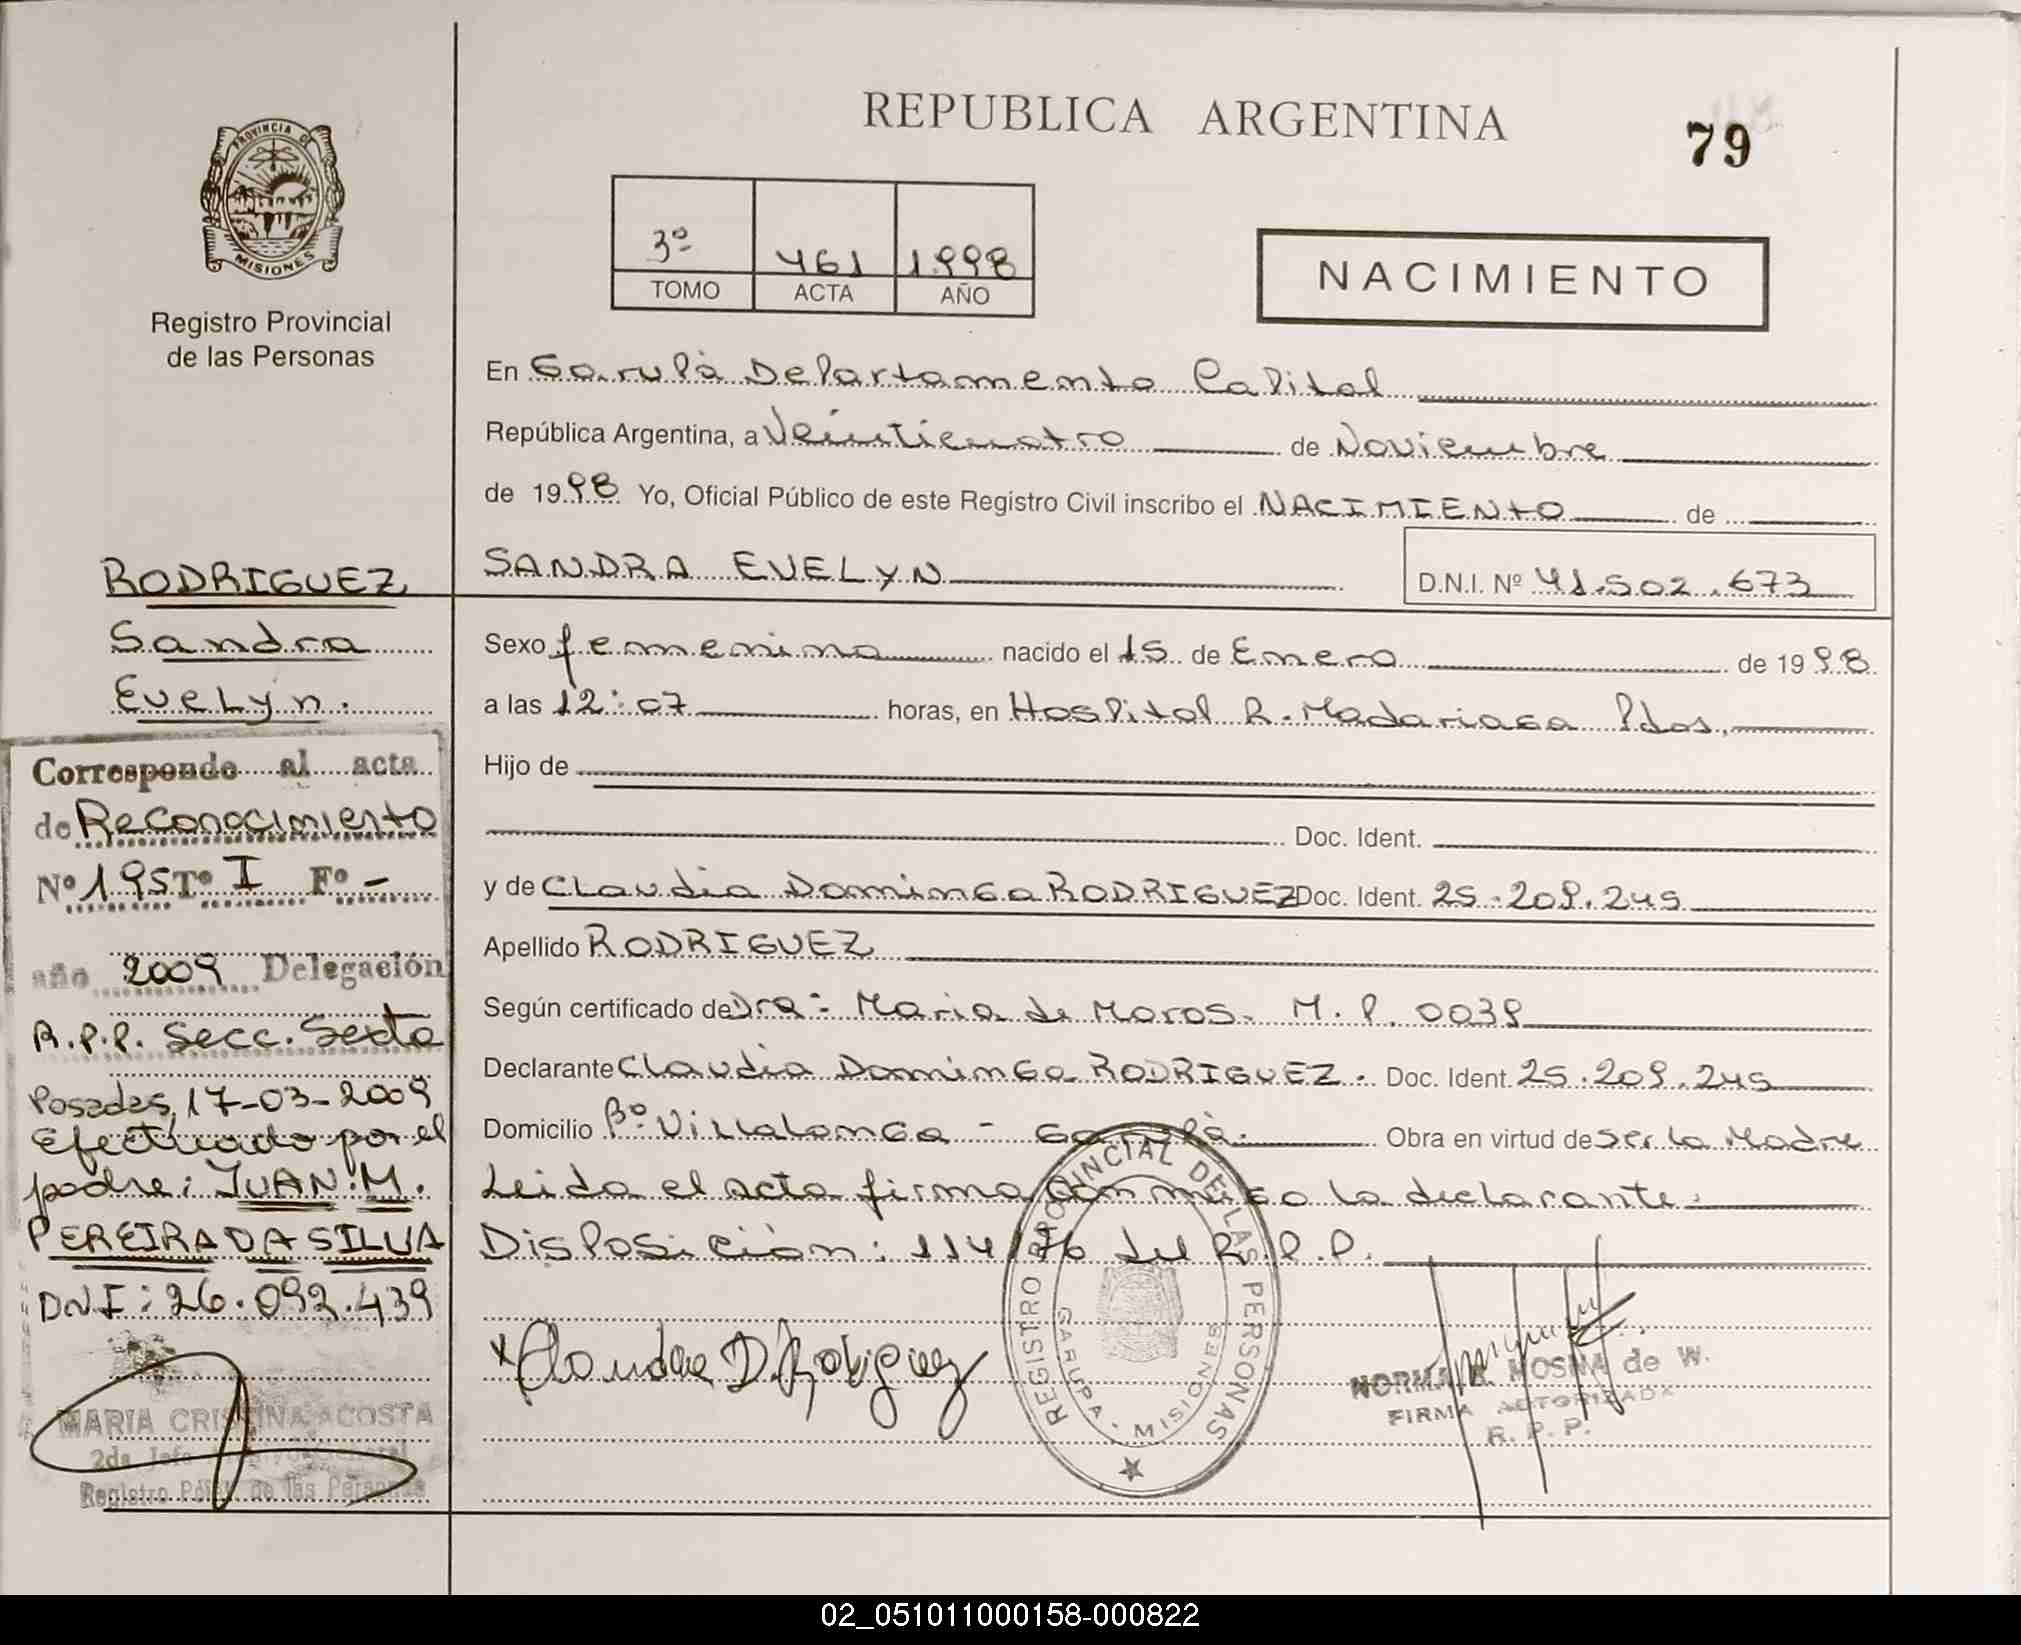 REPUBLICA ARGENTINA
79
PROVINCIA DE
MISIONES
Registro Provincial
de las Personas
3º 461 1998
TOMO ACTA AÑO
NACIMIENTO
En Garupà Departamento Capital
República Argentina, a Veinticuatro de Noviembre
de 1998 Yo, Oficial Público de este Registro Civil inscribo el NACIMIENTO de
SANDRA EVELYN D.N.I. Nº 41.502.673
Sexo femenino nacido el 15 de Enero de 1998
a las 12:07 horas, en Hospital R. Madariaga Pdas,
Hijo de
Doc. Ident.
y de Claudia Dominga RODRIGUEZ Doc. Ident. 25.209.245
Apellido RODRIGUEZ
Según certificado de Dra: Maria de Moros. M.P. 0039
Declarante Claudia Dominga RODRIGUEZ. Doc. Ident. 25.209.245
Domicilio Bº Villalonga - Garupà. Obra en virtud de ser la Madre
Leida el acta firma con migo la declarante.
Disposición: 114/76 del R.P.P.
x Claudia D. Rodriguez
REGISTRO PROVINCIAL DE LAS PERSONAS
GARUPA - MISIONES
NORMA B. MOSNA de W.
FIRMA AUTORIZADA
R. P. P.
RODRIGUEZ
Sandra
Evelyn.
Corresponde al acta
de Reconocimiento
Nº 195 Tº I Fº -
año 2009 Delegación
R.P.P. Secc. Sexta
Posadas, 17-03-2009
Efectuado por el
padre: JUAN M.
PEREIRA DA SILVA
DNI: 26.092.439
MARIA CRISTINA ACOSTA
2da Jefe
Registro Pcial. de las Personas
02_051011000158-000822